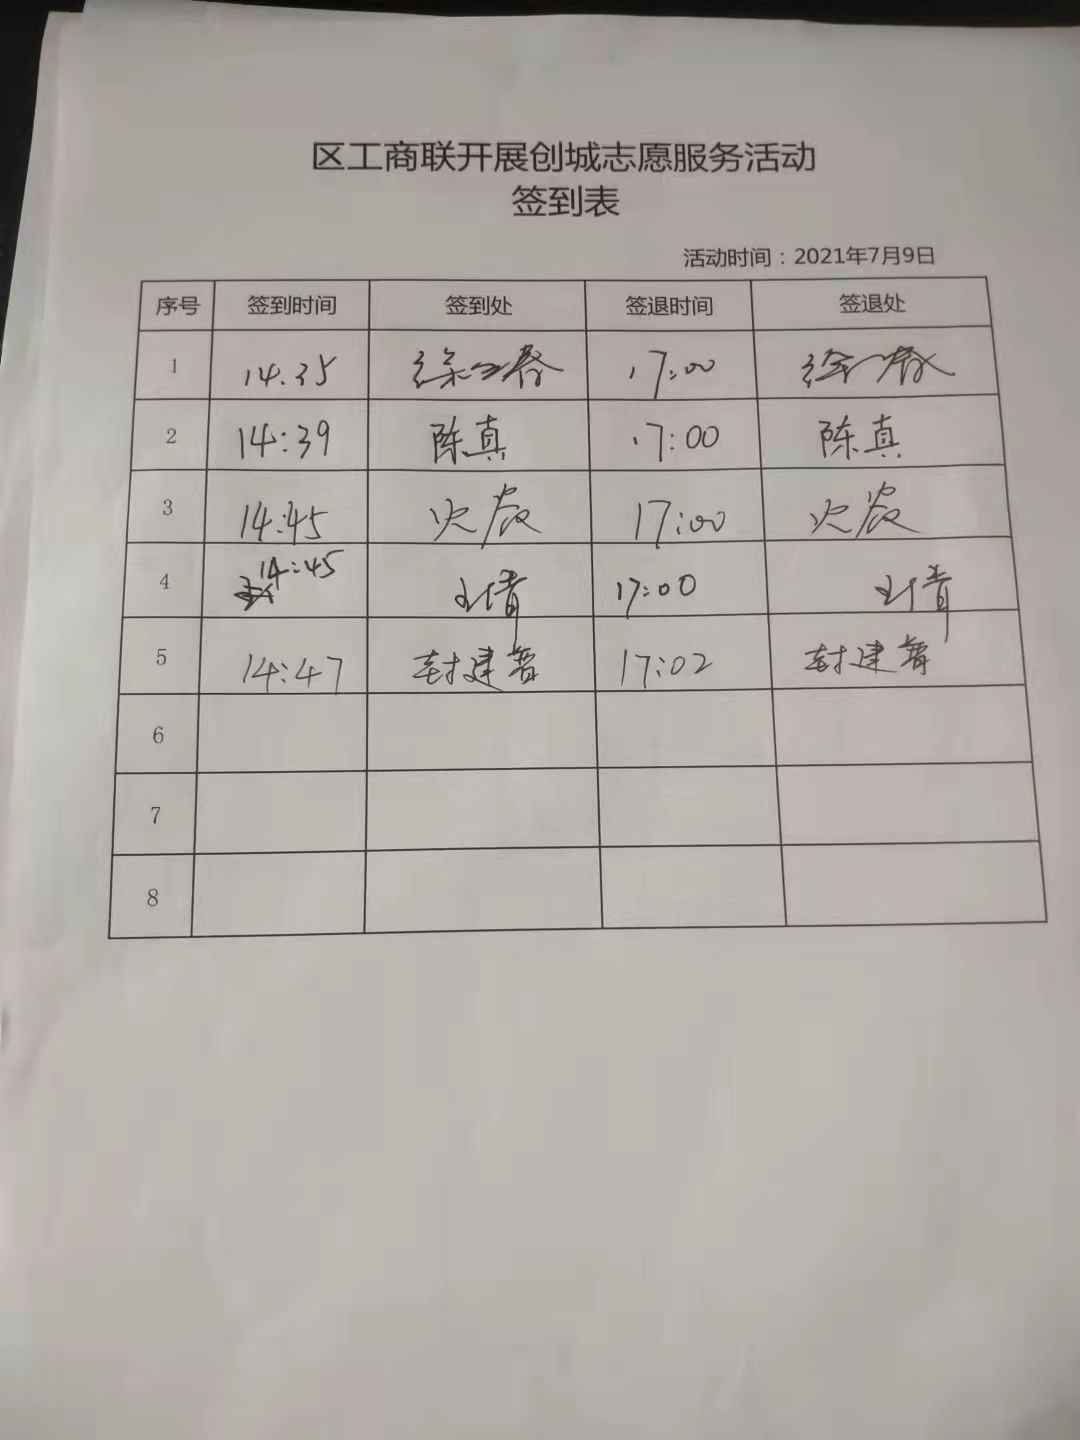 区工商联开展创城志愿服务活动
签到表
活动时间：2021年7月9日
序号 签到时间 签到处 签退时间 签退处
1 14.35 徐 春 17:00 徐 春
2 14:39 陈真 17:00 陈真
3 14:45 17:00
4 14:45 王倩 17:00 王倩
5 14:47 封建 17:02 封建
6
7
8